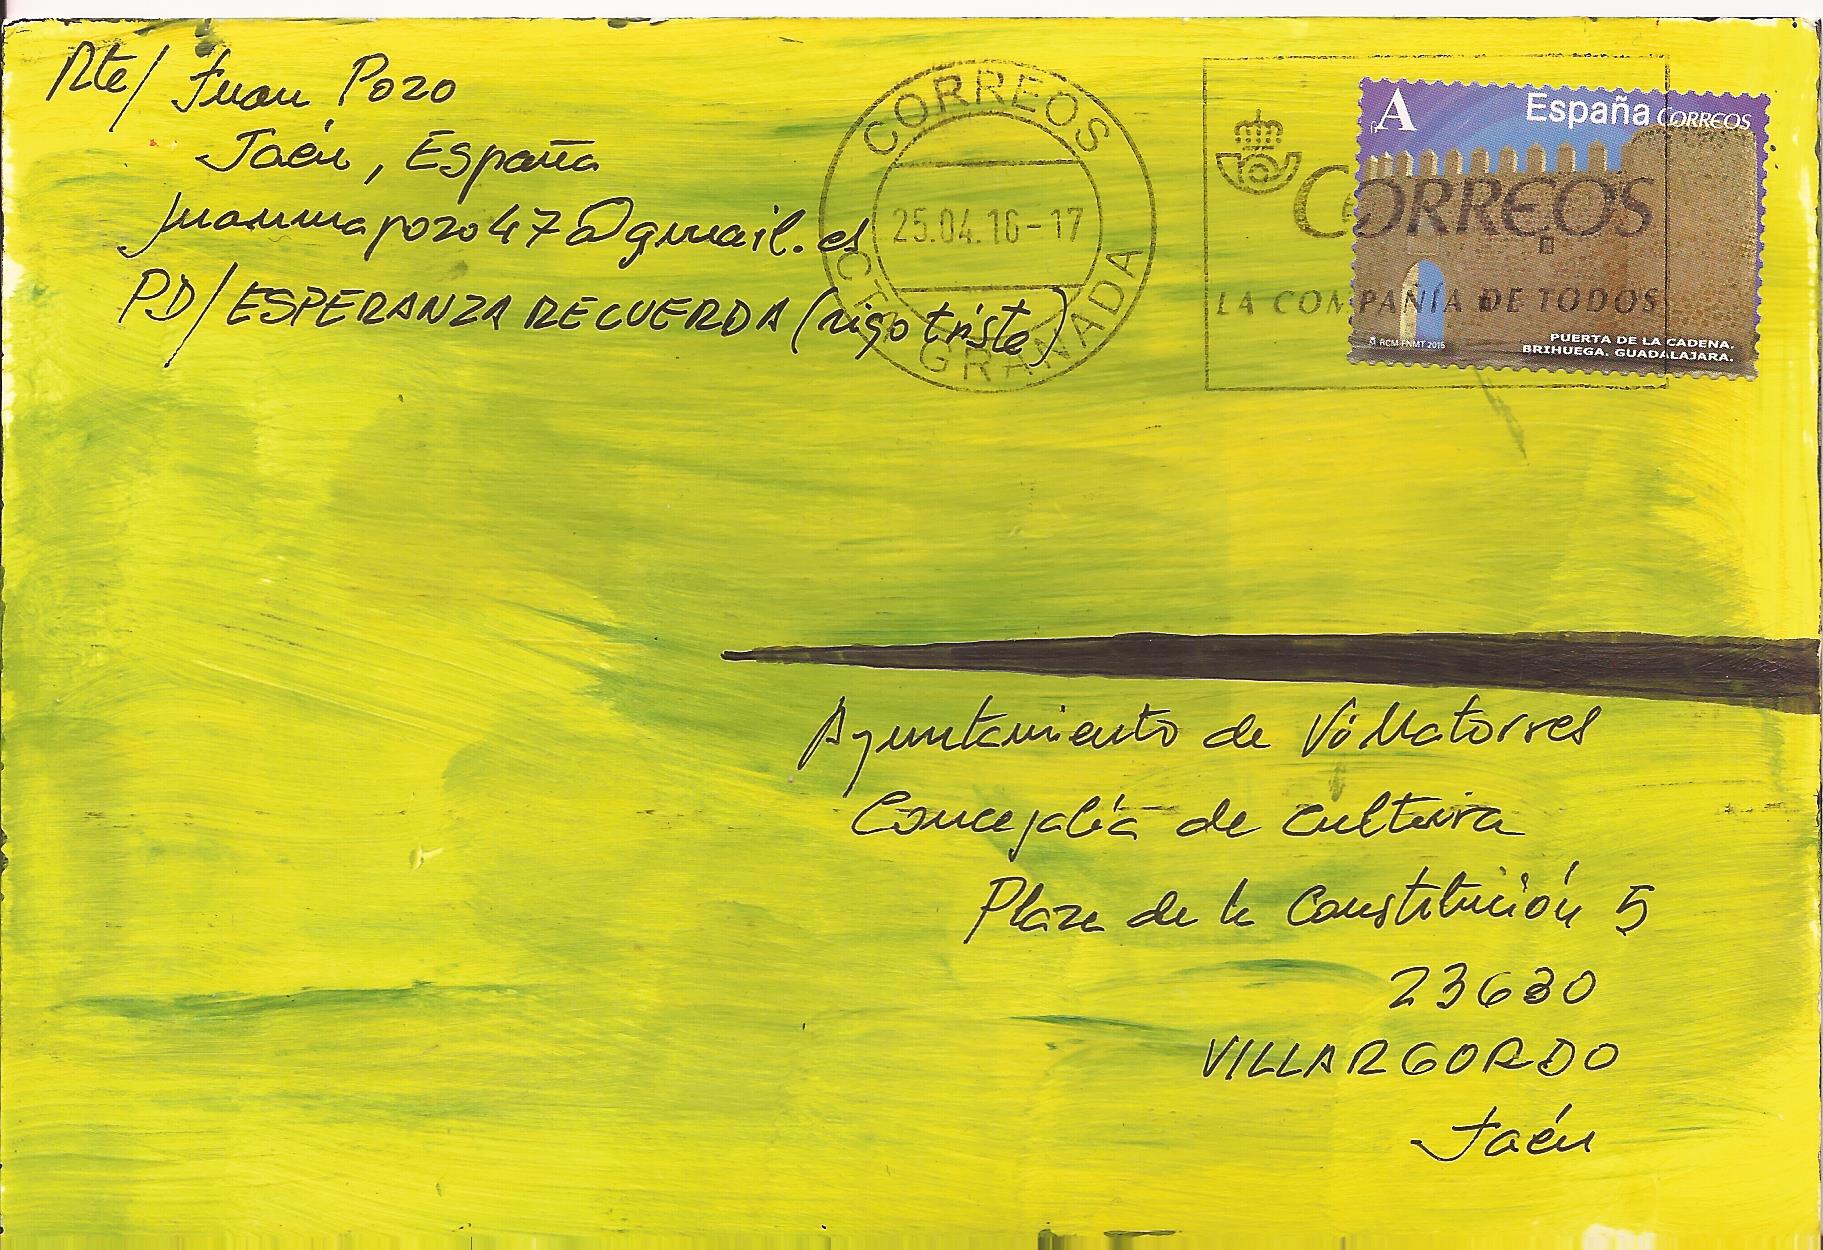 Rte/ Juan Pozo
Jaén, España
juanmapozo47@gmail.es
PD/ ESPERANZA RECUERDA (rigo triste)
CORREOS
25.04.16-17
GRANADA
CORREOS
LA COMPAÑIA DE TODOS
A
España CORREOS
RCM-FNMT 2015
PUERTA DE LA CADENA.
BRIHUEGA. GUADALAJARA.
Ayuntamiento de Villatorres
Concejalía de Cultura
Plaza de la Constitución 5
23630
VILLARGORDO
Jaén